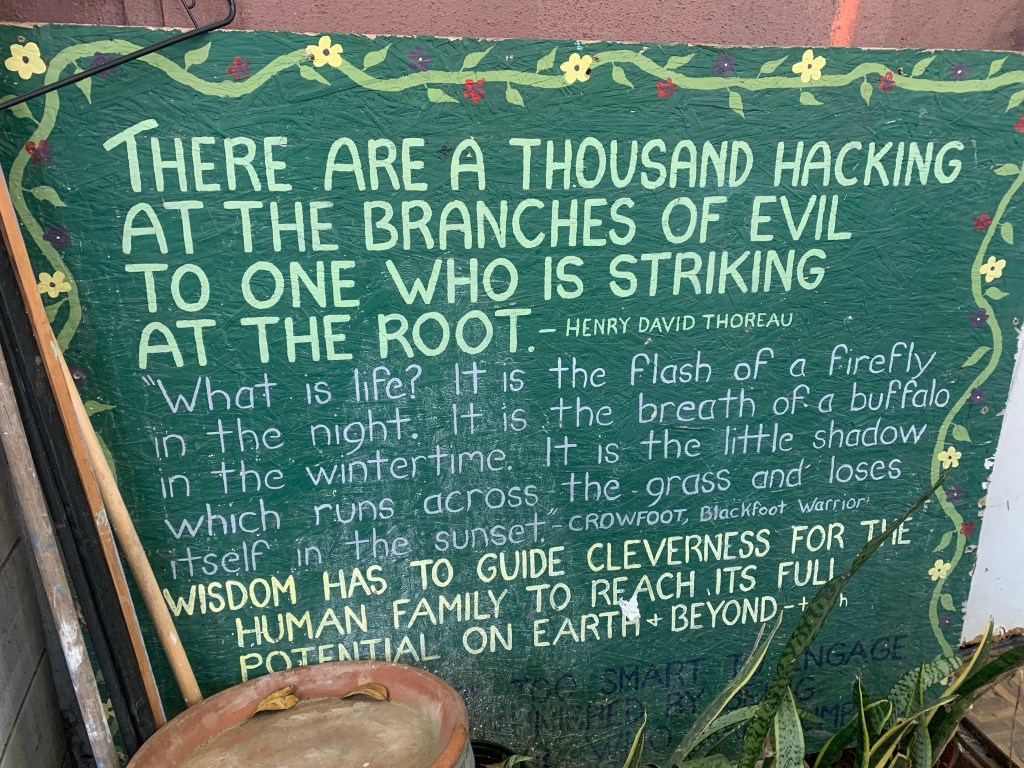 THERE ARE A THOUSAND HACKING
AT THE BRANCHES OF EVIL
TO ONE WHO IS STRIKING
AT THE ROOT. - HENRY DAVID THOREAU
"What is life? It is the flash of a firefly
in the night. It is the breath of a buffalo
in the wintertime. It is the little shadow
which runs across the grass and loses
itself in the sunset." - CROWFOOT, Blackfoot Warrior
WISDOM HAS TO GUIDE CLEVERNESS FOR THE
HUMAN FAMILY TO REACH ITS FULL
POTENTIAL ON EARTH + BEYOND -
TOO SMART
BY